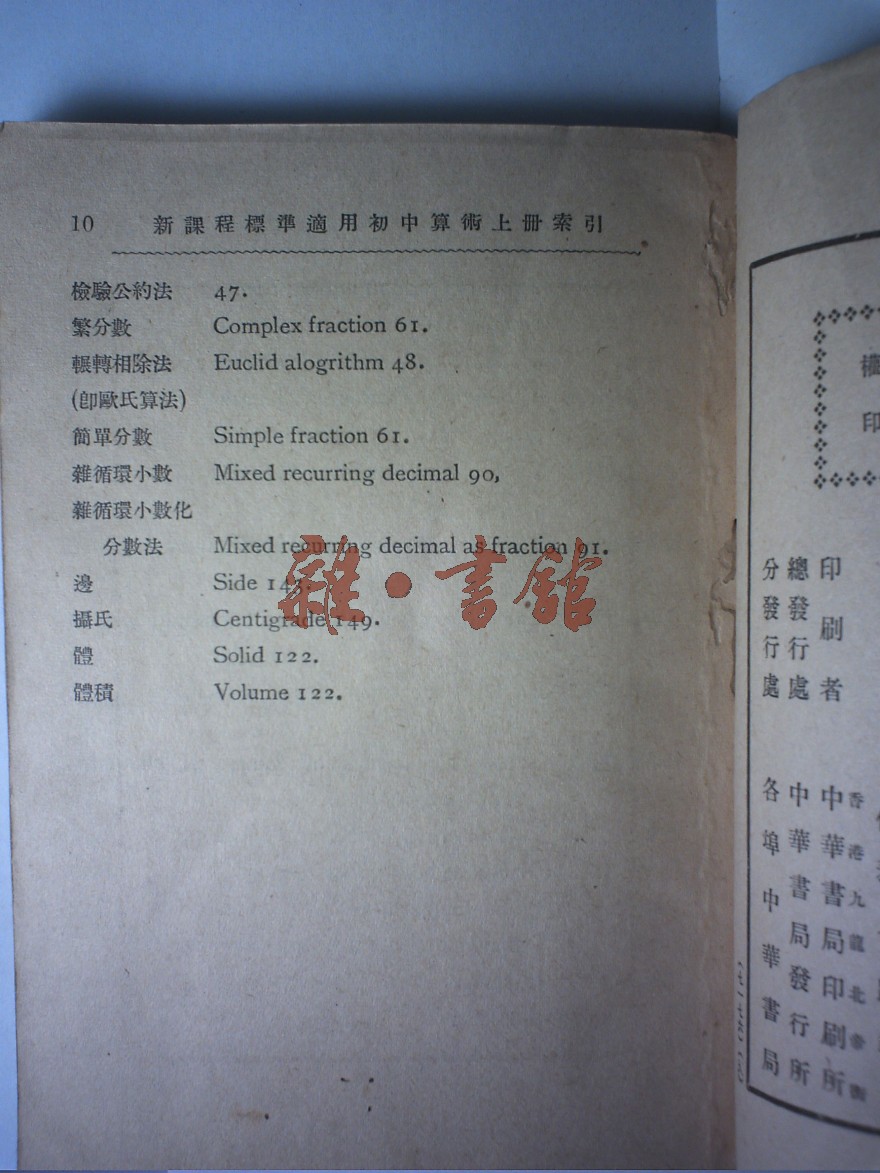 10 新課程標準適用初中算術上冊索引
檢驗公約法 47.
繁分數 Complex fraction 61.
輾轉相除法 Euclid alogrithm 48.
(卽歐氏算法)
簡單分數 Simple fraction 61.
雜循環小數 Mixed recurring decimal 90,
雜循環小數化
分數法 Mixed recurring decimal as fraction 91.
邊 Side 143.
攝氏 Centigrade 149.
體 Solid 122.
體積 Volume 122.
雜·書館
印刷者 中華書局印刷所
總發行處 中華書局發行所
分發行處 各埠中華書局